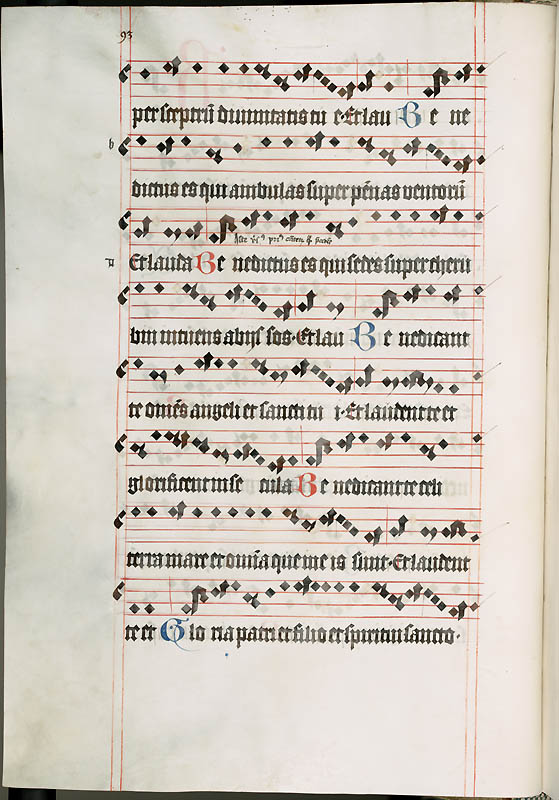 93
per sceptrū diuinitatis tu e·Et lau Be ne
b
dictus es qui ambulas super pēnas ventorū
Et lauda Be nedictus es qui sedes super cheru
bin intuens abyssos·Et lau Be nedicant
te om̄es angeli et sancti tu i·Et laudent te et
glorificent in se cula Be nedicant te celi
terra mare et om̄ia que in e is sunt·Et laudent
te et Glo ria patri et filio et spiritui sancto·